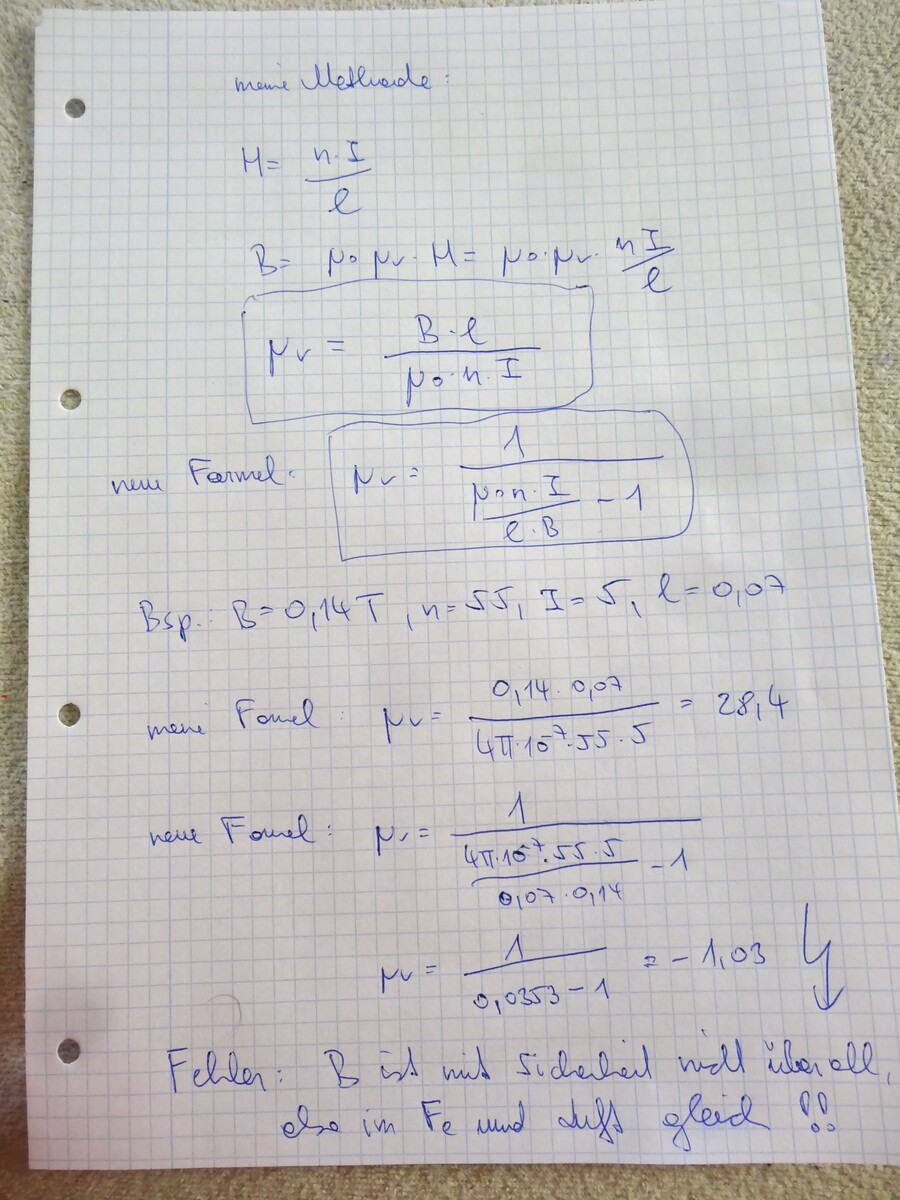 meine Methode:
H = n·I / l
B = μ0 μr · H = μ0·μr · nI / l
μr = B·l / μ0·n·I
neue Formel: μr = 1 / (μ0·n·I / l·B − 1)
Bsp.: B = 0,14T, n = 55, I = 5, l = 0,07
meine Fomel: μr = 0,14·0,07 / 4π·10⁻⁷·55·5 = 28,4
neue Fomel: μr = 1 / (4π·10⁻⁷·55·5 / 0,07·0,14 − 1)
μr = 1 / (0,0353 − 1) = −1,03
Fehler: B ist mit Sicherheit nicht überall,
also im Fe und Luft gleich !!